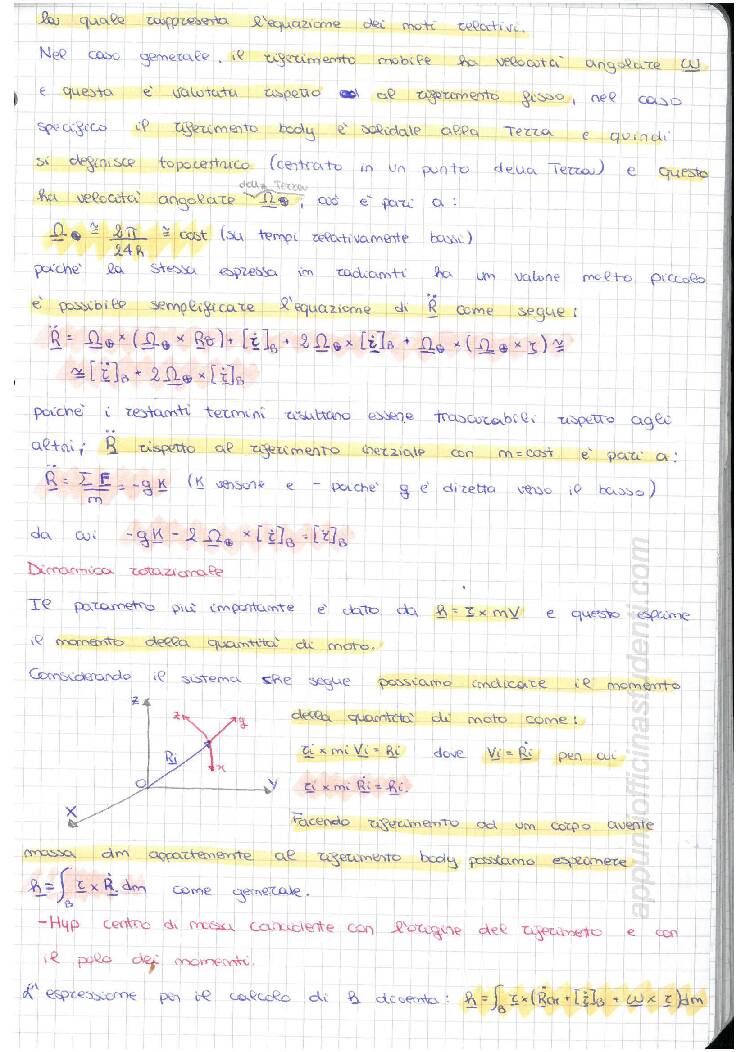 la quale rappresenta l'equazione dei moti relativi.
Nel caso generale, il riferimento mobile ha velocità angolare ω
e questa è valutata rispetto al riferimento fisso, nel caso
specifico il riferimento body è solidale alla Terra e quindi
si definisce topocentrico (centrato in un punto della Terra) e questo
della Terra
ha velocità angolare Ω⊕, ciò è pari a:
Ω⊕ ≅ 2π/24h ≅ cost (su tempi relativamente bassi)
poiché la stessa espressa in radianti ha un valore molto piccolo
è possibile semplificare l'equazione di R̈ come segue:
R̈ = Ω⊕ × (Ω⊕ × R⊕) + [r̈]B + 2 Ω⊕ × [ṙ]B + Ω⊕ × (Ω⊕ × r) ≅
≅ [r̈]B + 2 Ω⊕ × [ṙ]B
poiché i restanti termini risultano essere trascurabili rispetto agli
altri; R̈ rispetto al riferimento inerziale con m=cost è pari a:
R̈ = ΣF/m = -gK (K versore e - poiché g è diretta verso il basso)
da cui -gK - 2 Ω⊕ × [ṙ]B = [r̈]B
Dinamica rotazionale
Il parametro più importante è dato da h = r × mV e questo esprime
il momento della quantità di moto.
Considerando il sistema che segue possiamo indicare il momento
della quantità di moto come:
ri × mi Vi = hi dove Vi = Ṙi per cui
ri × mi Ṙi = hi.
Z z y Ri x O Y X
Facendo riferimento ad un corpo avente
massa dm appartenente al riferimento body possiamo esprimere
h = ∫B r × Ṙ dm come generale.
-Hyp centro di massa coincidente con l'origine del riferimento e con
il polo dei momenti.
L'espressione per il calcolo di h diventa: h = ∫B r × (Ṙcm + [ṙ]B + ω × r) dm
appuntiofficinastudenti.com